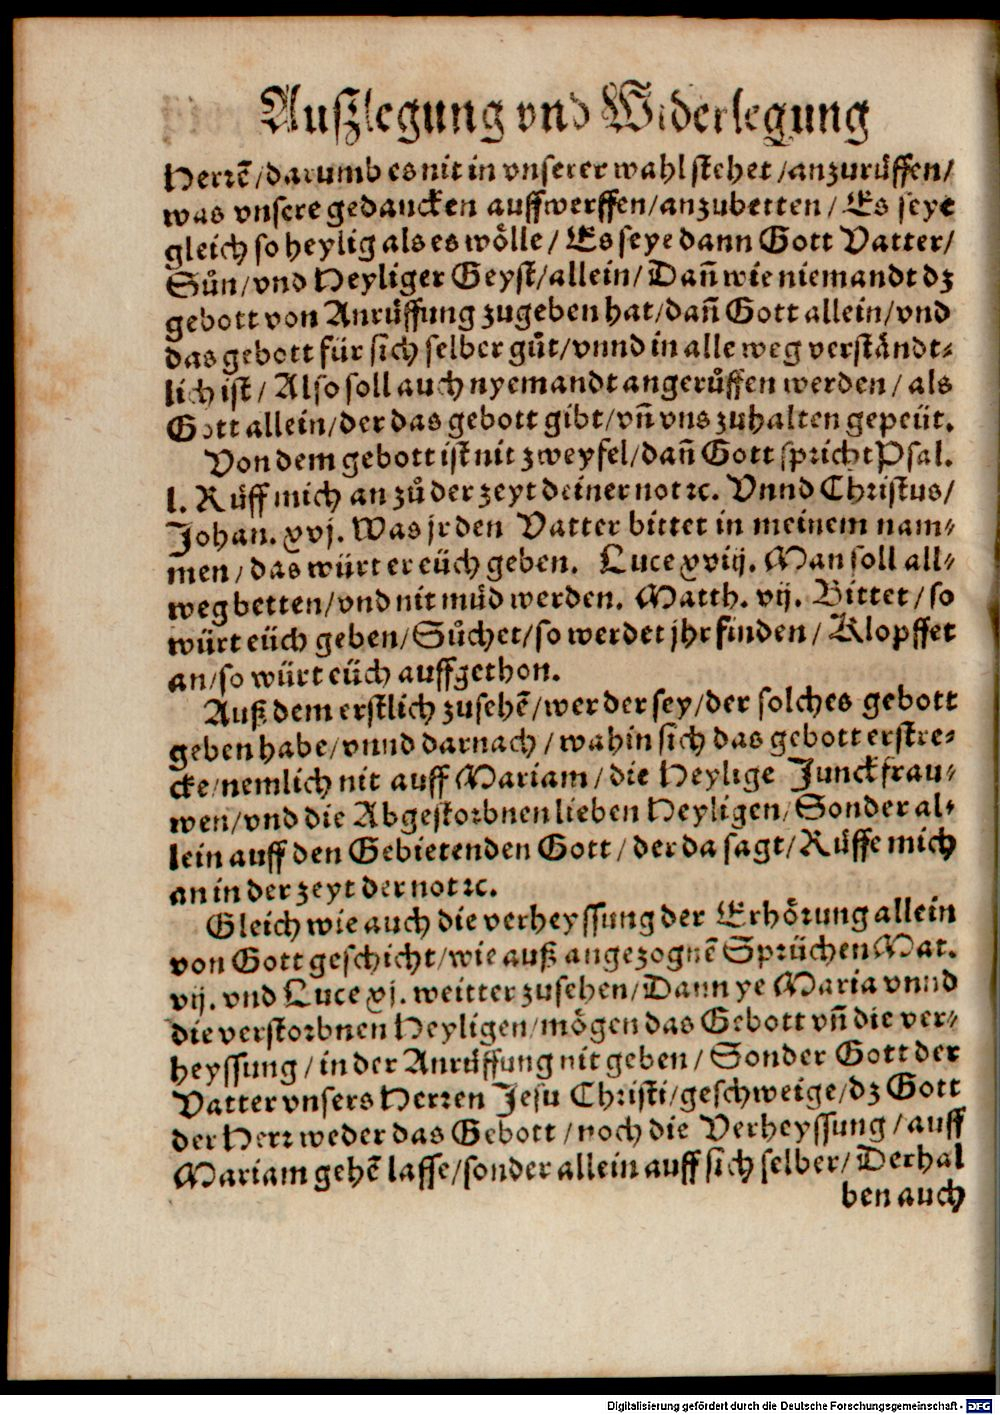 Auſzlegung vnd Widerlegung
Herꝛē/darumb es nit in vnserer wahl stehet/anzurůffen/
was vnsere gedancken auffwerffen/anzubetten/ Es seye
gleich so heylig als es wölle/ Es seye dann Gott Vatter/
Sůn/vnd Heyliger Geyst/allein/Dañ wie niemandt dz
gebott von Anrůffung zugeben hat/dañ Gott allein/vnd
das gebott für sich selber gůt/vnnd in alle weg verständt⸗
lich ist/ Also soll auch nyemandt angerůffen werden/ als
Gott allein/der das gebott gibt/vñ vns zuhalten gepeüt.
Von dem gebott ist nit zweyfel/dañ Gott spricht Psal.
l. Růff mich an zů der zeyt deiner not ꝛc. Vnnd Christus/
Johan. xvj. Was jr den Vatter bittet in meinem nam⸗
men/das würt er eüch geben. Luce xviij. Man soll all⸗
weg betten/vnd nit müd werden. Matth. vij. Bittet/so
würt eüch geben/Sůchet/so werdet jhr finden/ Klopffet
an/so würt eüch auffgethon.
Auß dem erstlich zusehē/wer der sey/der solches gebott
geben habe/vnnd darnach/wahin sich das gebott erstre⸗
cke/nemlich nit auff Mariam/die Heylige Junckfrau⸗
wen/vnd die Abgestoꝛbnen lieben Heyligen/Sonder al⸗
lein auff den Gebietenden Gott/der da sagt/Růffe mich
an in der zeyt der not ꝛc.
Gleich wie auch die verheyssung der Erhöꝛung allein
von Gott geschicht/wie auß angezognē Sprüchen Mat.
vij. vnd Luce xj. weitter zusehen/Dann ye Maria vnnd
die verstoꝛbnen Heyligen/mögen das Gebott vñ die ver⸗
heyssung/in der Anrůffung nit geben/Sonder Gott der
Vatter vnsers Herꝛen Jesu Christi/geschweige/dz Gott
der Herꝛ weder das Gebott/noch die Verheyssung/auff
Mariam gehē lasse/sonder allein auff sich selber/Derhal
ben auch
Digitalisierung gefördert durch die Deutsche Forschungsgemeinschaft - DFG